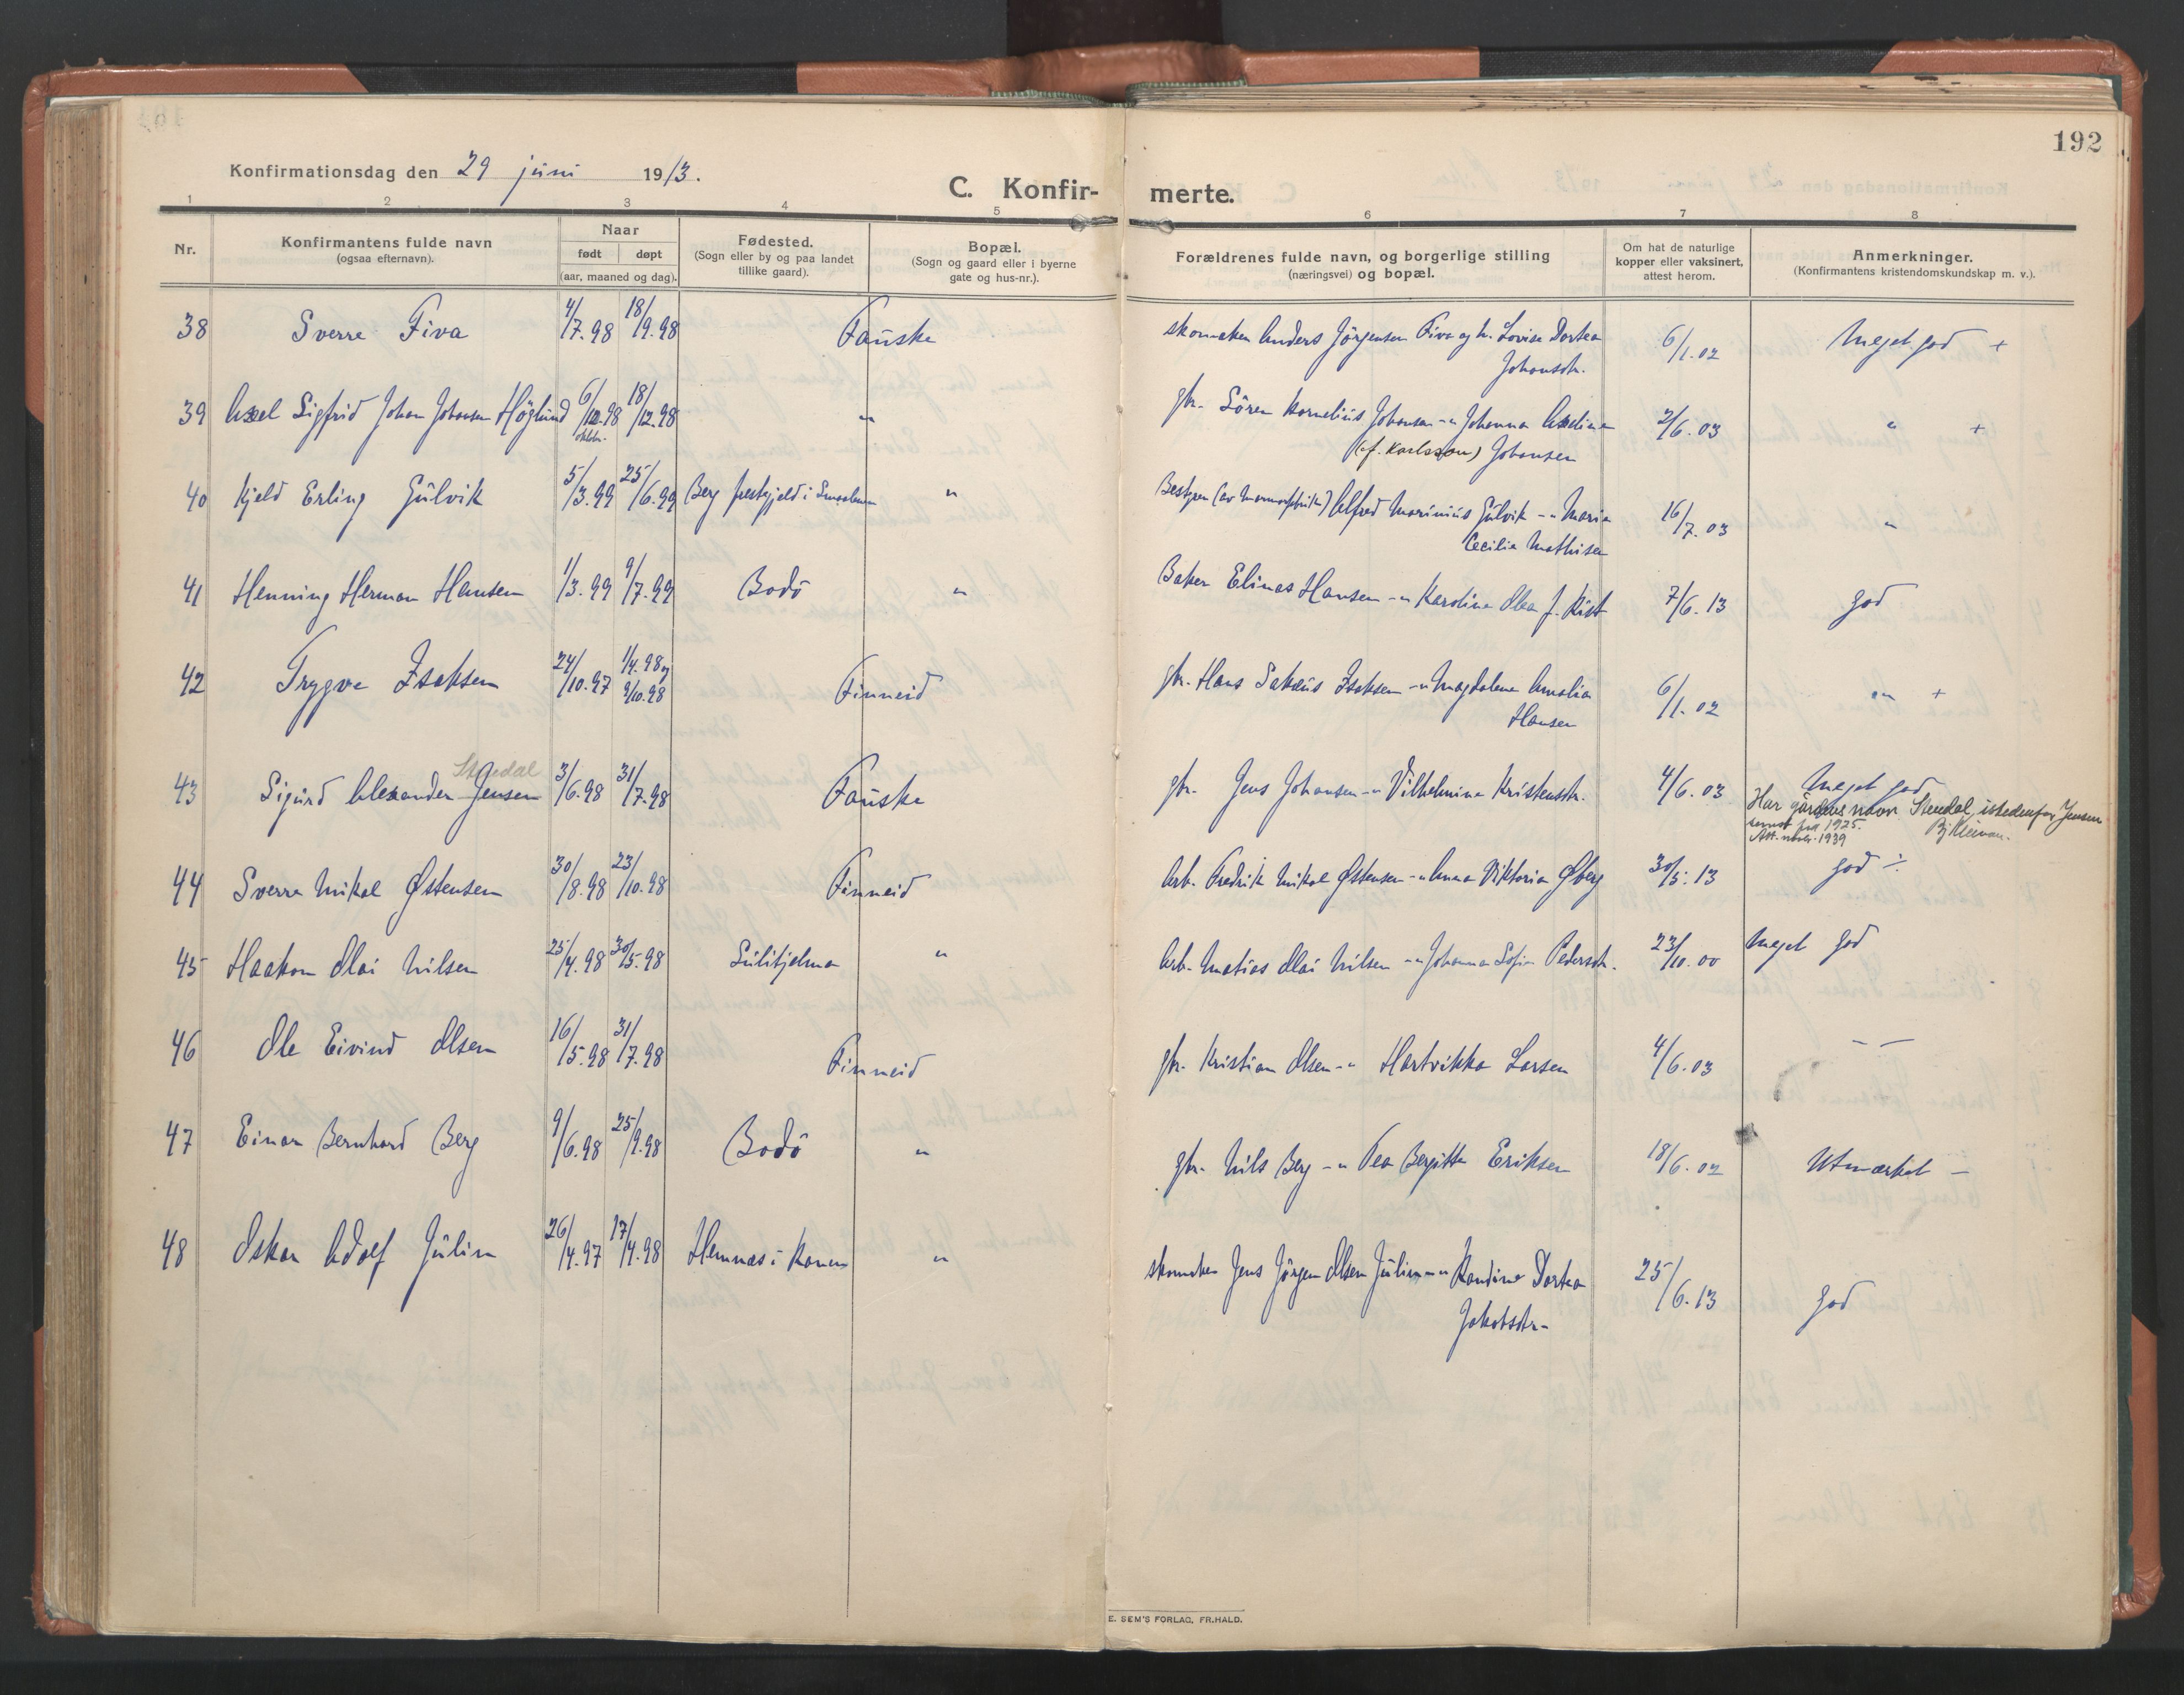 192
Konfirmationsdag den 29 juni 1913.
C. Konfir- merte.
1 2 3 4 5 6 7 8
Nr.
Konfirmantens fulde navn
(ogsaa efternavn).
Naar
født døpt
(aar, maaned og dag).
Fødested.
(Sogn eller by og paa landet
tillike gaard).
Bopæl.
(Sogn og gaard eller i byerne
gate og hus-nr.).
Forældrenes fulde navn, og borgerlige stilling
(næringsvei) og bopæl.
Om hat de naturlige
kopper eller vaksinert,
attest herom.
Anmerkninger.
(Konfirmantens kristendomskundskap m. v.).
38 Sverre Fiva 4/7.98 18/9.98 Fauske skomaker Anders Jörgensen Fiva og h. Lovise Dortea 6/1.02 Meget god +
Johansdtr.
39 Axel Sigfrid Johan Johansen Höglund 6/12.98 18/12.98 " gbr. Sören Kornelius Johansen -"- Johanna Axeline 2/6.03 " +
oktbr. (f. Karlsson) Johansen
40 Kjeld Erling Gulvik 5/3.99 25/6.99 Berg prestgjeld i Smaalenene " Bestyrer (av marmorfabrik) Alfred Marinius Gulvik -"- Marie 16/7.03 "
Cecilie Mathisen
41 Henning Herman Hansen 1/3.99 9/7.99 Bodö " Baker Elinas Hansen -"- Karoline Olea f. Rist 7/6.13 god
42 Trygve Isaksen 24/10.97 1/4.98 og Finneid gbr. Hans Sakæus Isaksen -"- Magdalene Amalia 6/1.02 -"- +
9/10.98 Hansen
Stendal
43 Sigurd Alexander Jensen 3/6.98 31/7.98 Fauske gbr. Jens Johansen -"- Vilhelmine Kristensdtr. 4/6.03 Meget god
Har gårdens navn Stendal istedenfor Jensen
senest fra 1925.
Att. novbr. 1939
44 Sverre Mikal Østensen 30/8.98 23/10.98 Finneid Arb. Fredrik Mikal Østensen -"- Anna Viktoria Øberg 30/5.13 god ÷
45 Haakon Olai Nilsen 25/4.98 30/5.98 Sulitjelma " Arb. Matias Olai Nilsen -"- Johanna Sofie Pedersdtr. 23/10.00 Meget god
46 Ole Eivind Olsen 16/5.98 31/7.98 Finneid gbr. Kristian Olsen -"- Hartvikka Larsen 4/6.03 — —
47 Einar Bernhard Berg 9/6.98 25/9.98 Bodö " gbr. Nils Berg -"- Tea Bergitte Eriksen 18/6.02 Utmærket —
48 Oskar Adolf Julin 26/4.97 17/4.98 Hemnæs i Ranen " skomaker Jens Jörgen Olsen Julin -"- Randine Dortea 25/6.13 god
Jakobsdtr.
E. SEM'S FORLAG, FR.HALD.